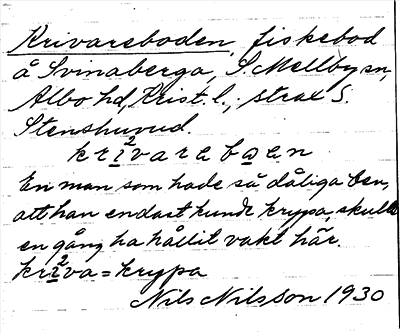 Krivareboden, fiskebod
å Svinaberga, S. Mellby sn,
Albo hd, Krist. l., strax S.
Stenshuvud.
krì²varebɷen
En man som hade så dåliga ben,
att han endast kunde krypa, skulle
en gång ha hållit vakt här.
krì²va = krypa
Nils Nilsson 1930